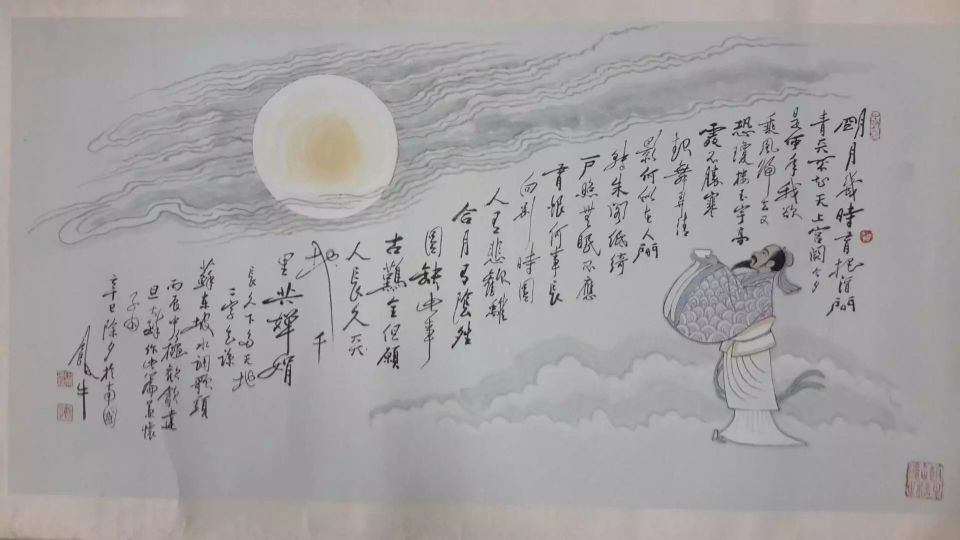 明月幾時有把酒問
青天不知天上宮闕今夕
是何年我欲
乘風歸去又
恐瓊樓玉宇高
處不勝寒
起舞弄清
影何似在人間
轉朱閣低綺
戶照無眠不應
有恨何事長
向別時圓
人有悲歡離
合月有陰
圓缺此事
古難全但願
人長久天
地千
里共嬋娟
長久下多天地
二字
蘇東坡水調歌頭
丙辰中秋歡飲達
旦大醉作此篇兼懷
子由
辛巳除夕於南國
牛